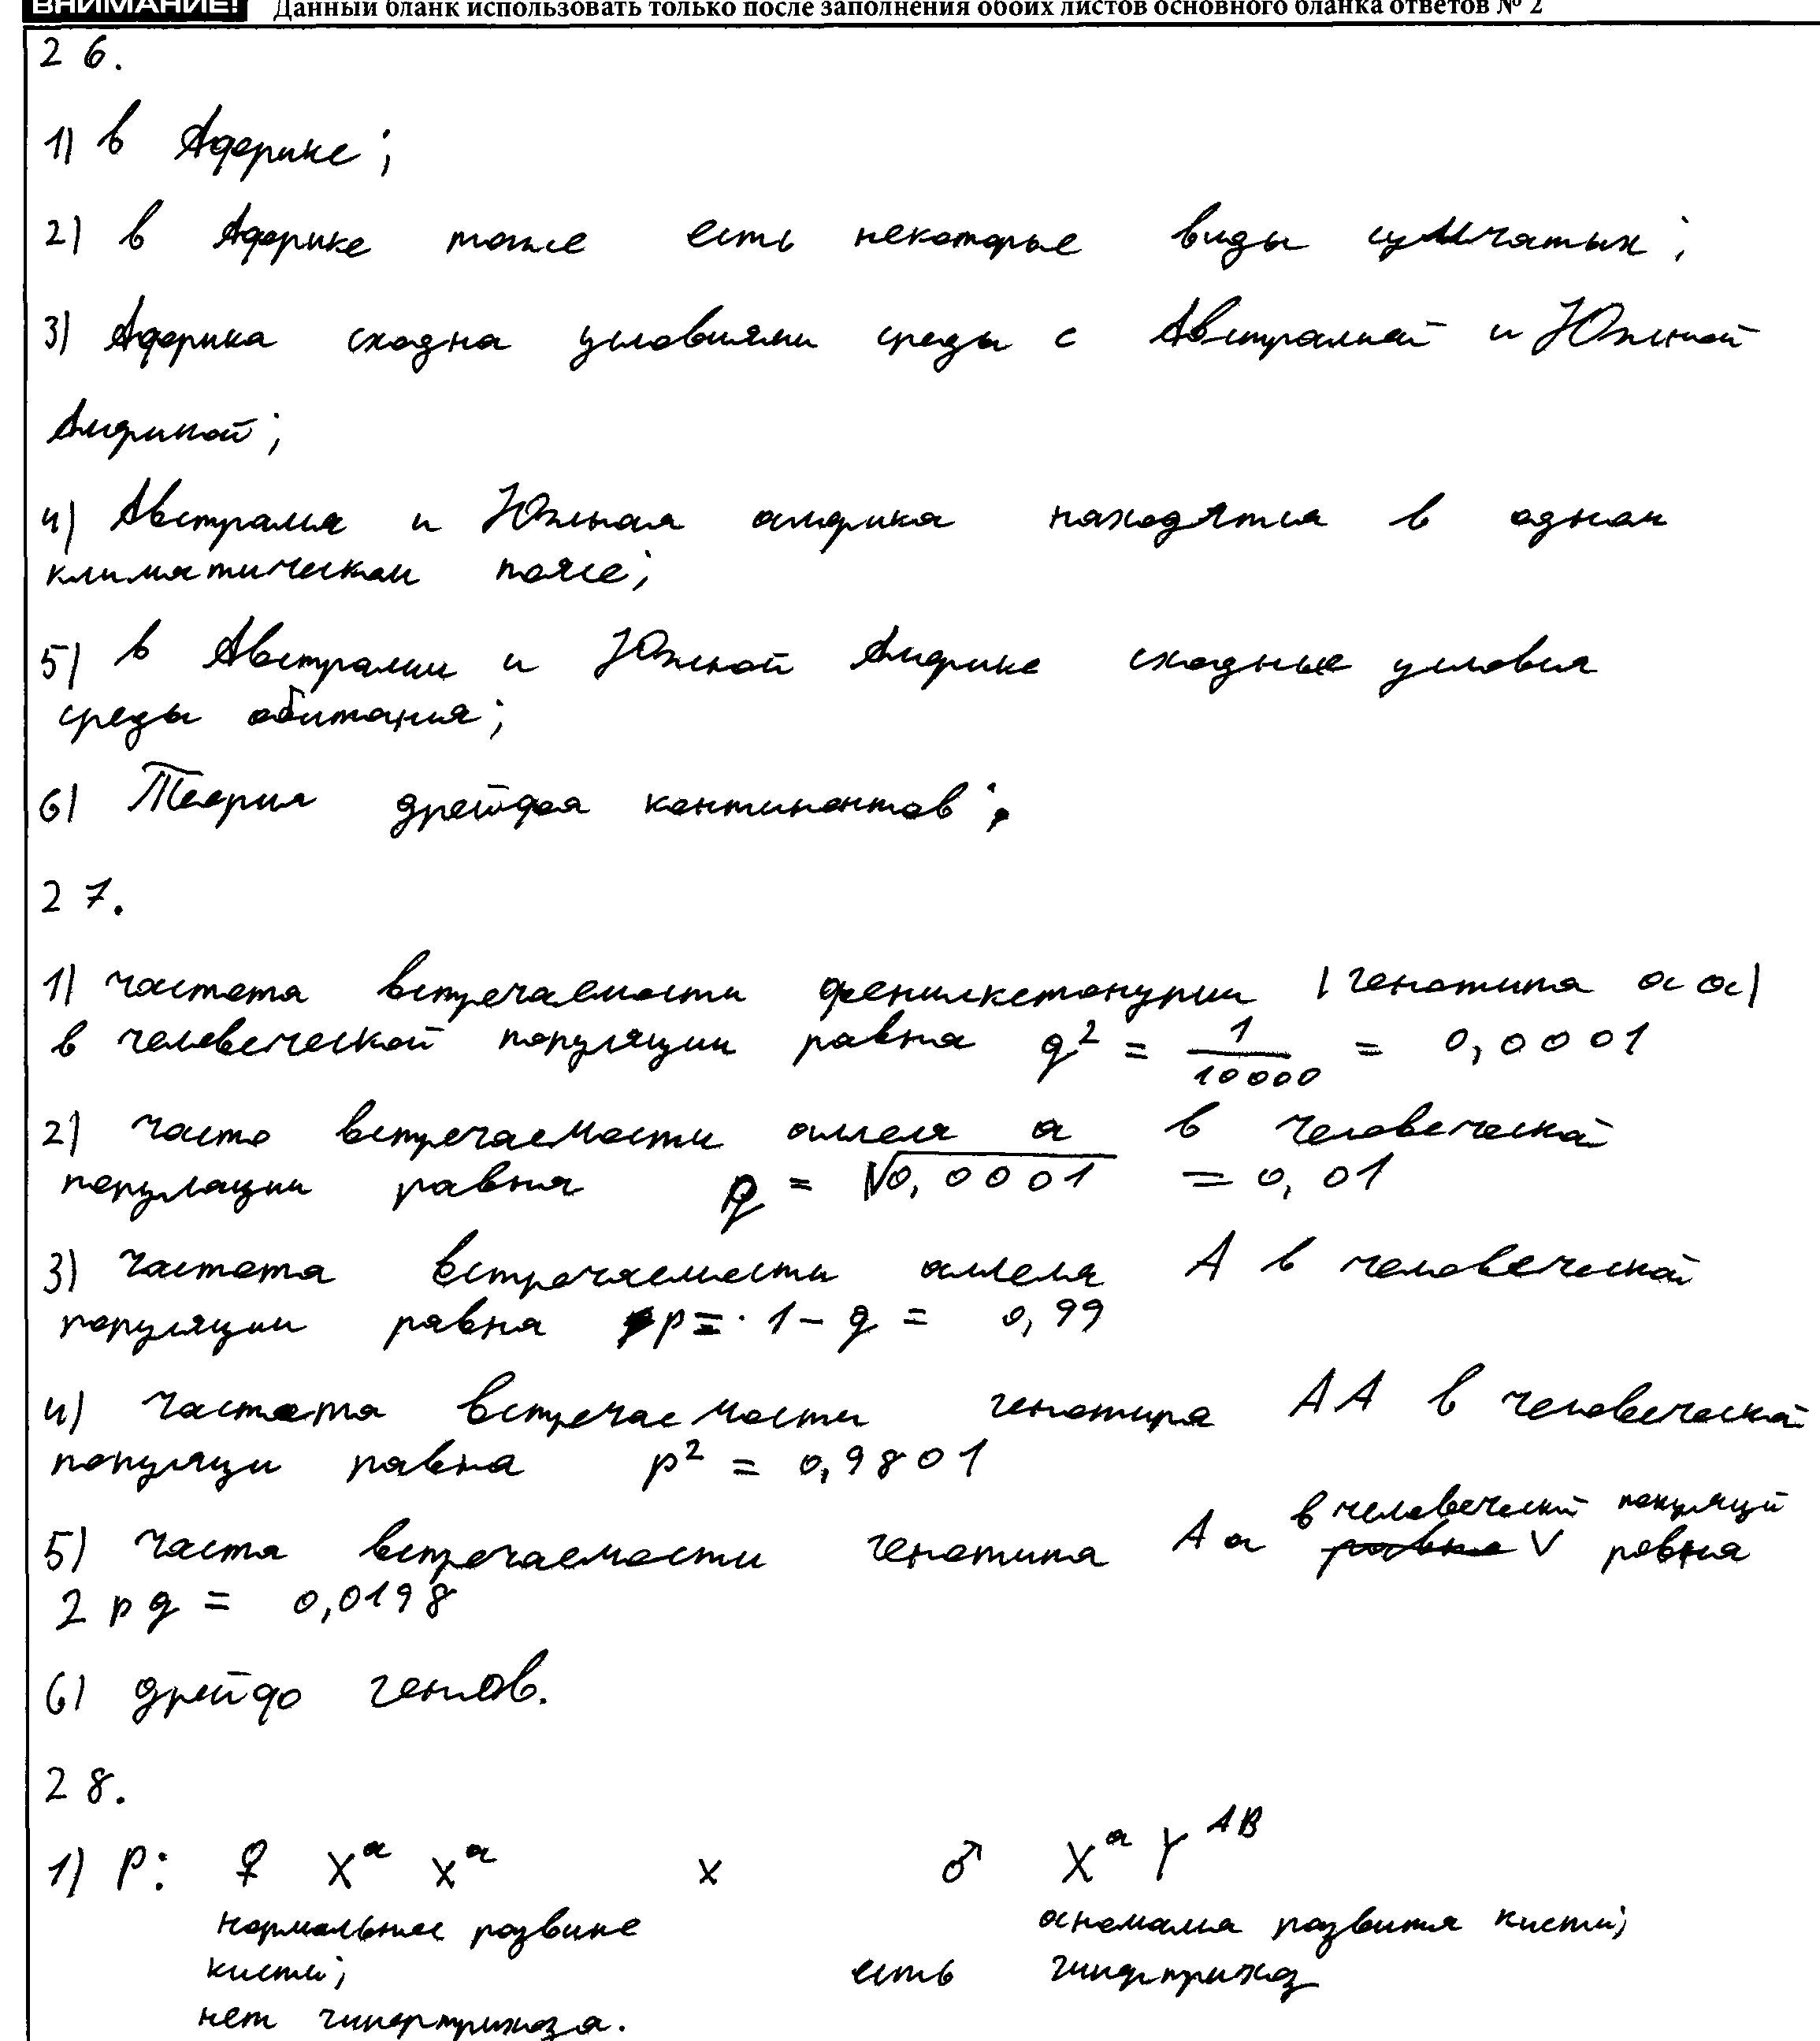 ВНИМАНИЕ! Данный бланк использовать только после заполнения обоих листов основного бланка ответов № 2
26.
1) в Африке;
2) в Африке тоже есть некоторые виды сумчатых;
3) Африка сходна условиями среды с Австралией и Южной
Америкой;
4) Австралия и Южная америка находятся в одном
климатическом поясе;
5) в Австралии и Южной Америке сходные условия
среды обитания;
6) Теория дрейфа континентов;
27.
1) частота встречаемости фенилкетонурии (генотипа aa)
в человеческой популяции равна q² = 1/10000 = 0,0001
2) часто встречаемости аллеля a в человеческой
популации равна q = √0,0001 = 0,01
3) частота встречаемости аллеля A в человеческой
популяции равна p = 1 - q = 0,99
4) частота встречаемости генотипа AA в человеческой
популяци равна p² = 0,9801
5) часта встречаемости генотипа Aa в человеческой популяций равна
2pq = 0,0198
6) дрейф генов.
28.
1) P: ♀ Xᵃ Xᵃ x ♂ Xᵃ Yᴬᴮ
нормальное развине аномалия развития кисти;
кисти; есть гипертрихоз
нет гипертрихоза.